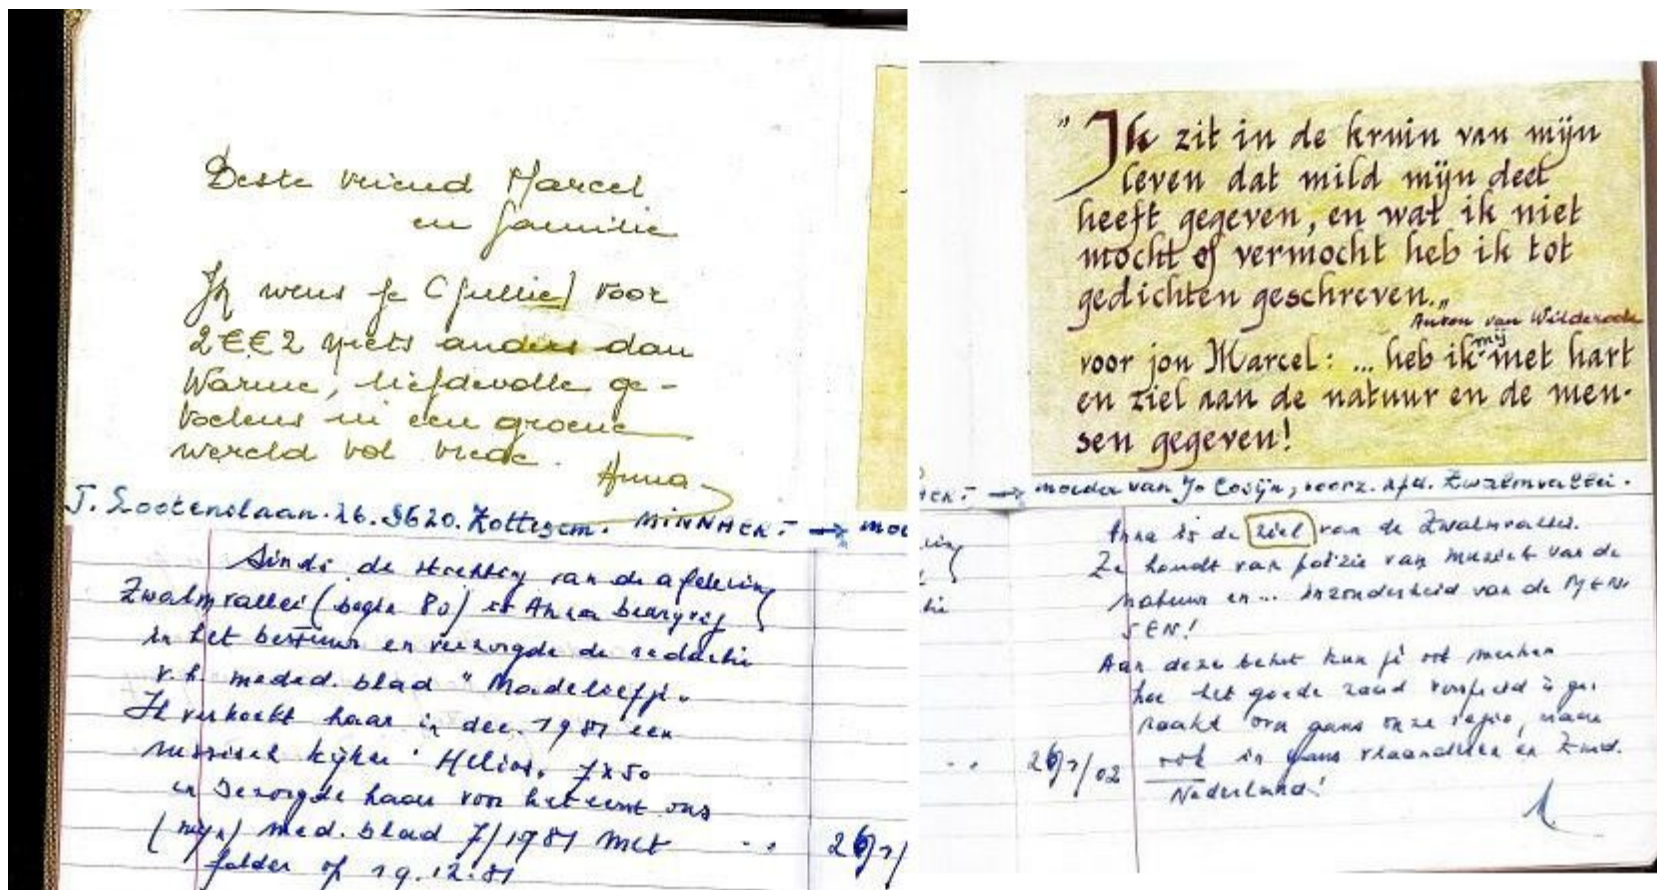 Beste vriend Marcel
en familie
Ik wens je (jullie) voor
2€€2 niets anders dan
Warme, liefdevolle ge-
voelens in een groene
wereld vol vrede.
Anna
J. Lootenslaan. 26. 9620. Zottegem. MINNAERT →
Sinds de stichting van de afdeling
Zwalmvallei (begin 80) is Anna
in het bestuur en verzorgde de redactie
v.h. meded. blad "Madeliefje"
Ik verkocht haar in dec. 1981 een
russisch kijker "Helios" 7x50
en bezorgde haar voor het eerst ons
(mijn) med. blad 7/1981 met
folder op 19.12.81
" Ik zit in de kruin van mijn
leven dat mild mijn deel
heeft gegeven, en wat ik niet
mocht of vermocht heb ik tot
gedichten geschreven.„
Anton van Wilderode
voor jou Marcel: ... heb ik mij met hart
en ziel aan de natuur en de men-
sen gegeven!
→ moeder van Jo Cosijn, voorz. afd. Zwalmvallei.
Anna is de ziel van de Zwalmvallei.
Ze houdt van poëzie van muziek van de
natuur en ... inzonderheid van de MEN
SEN!
Aan deze tekst kun je ook merken
hoe het goede zaad verspreid is ge-
raakt over gans onze regio, maar
26/1/02 ook in gans vlaanderen en Zuid.
Nederland!